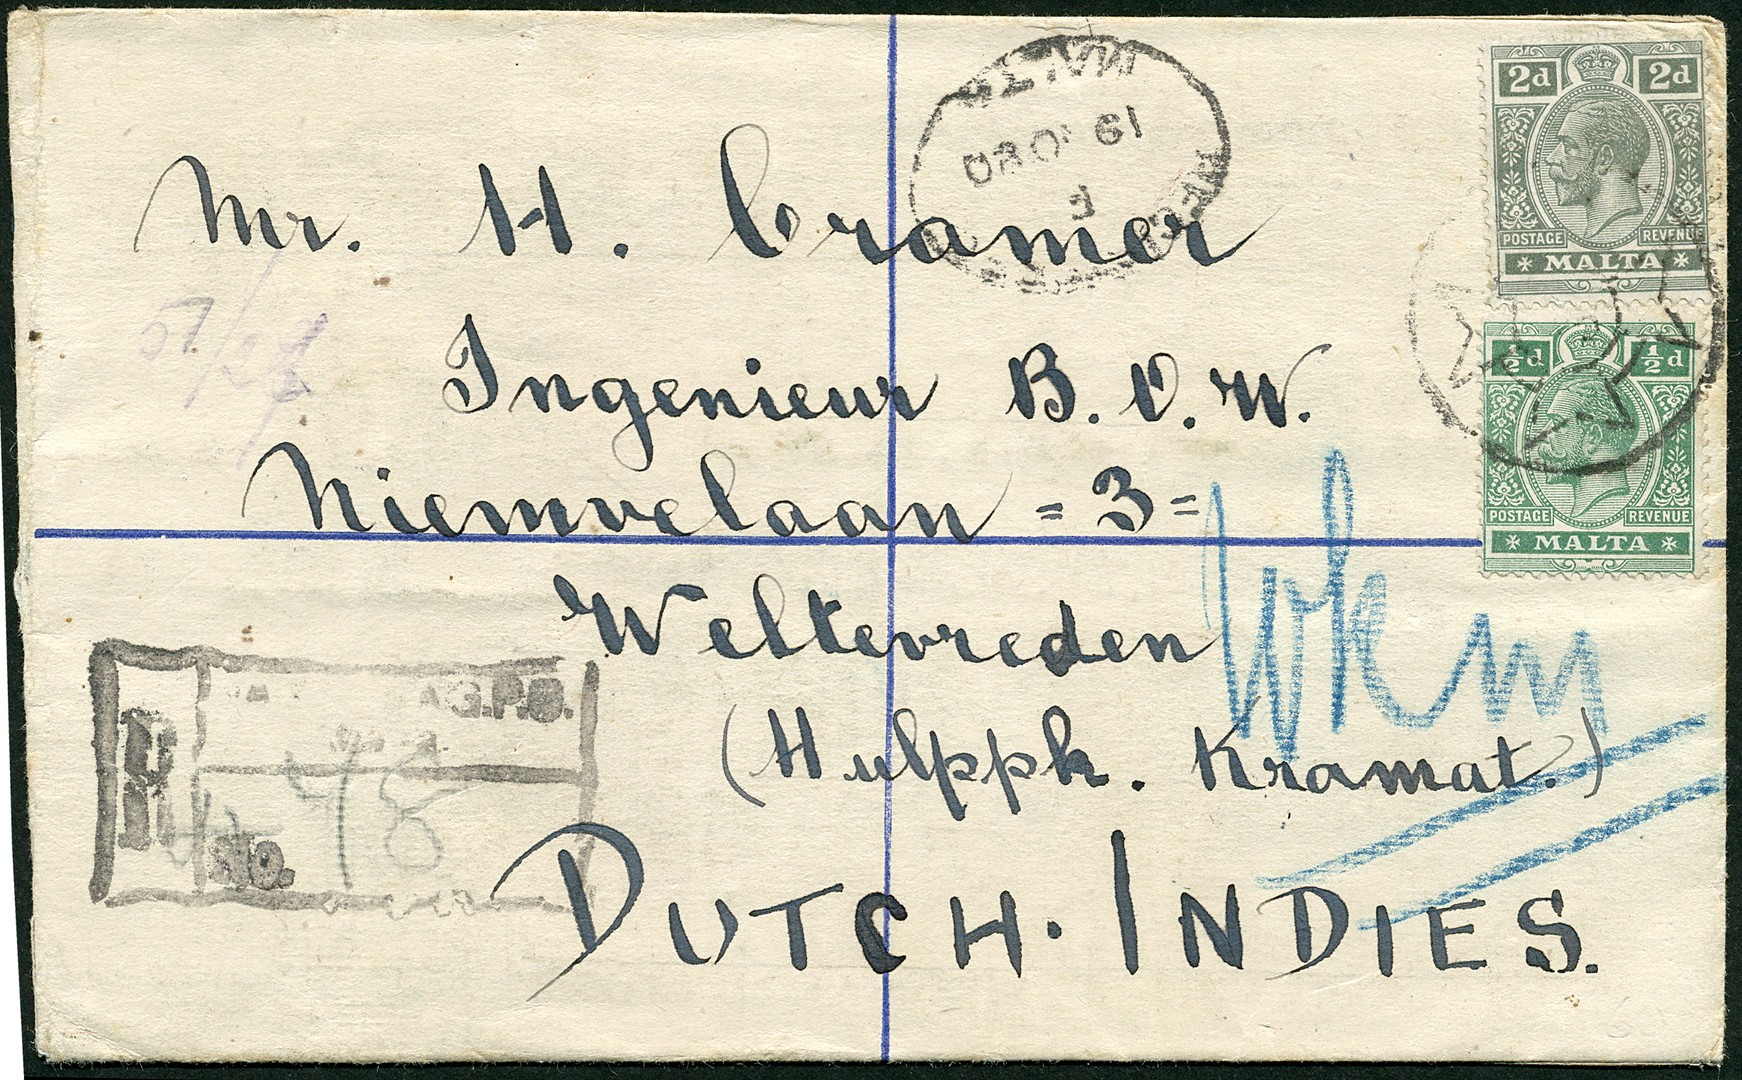 MALTA
19 OC 20
2d 2d
POSTAGE REVENUE
MALTA
½d ½d
POSTAGE REVENUE
MALTA
Mr. H. Cramer
Ingenieur B.O.W.
Niemvelaan = 3 =
Weltevreden
(Hulppk. Kramat.)
DUTCH. INDIES.
wkm
R
G.P.O.
No. 48